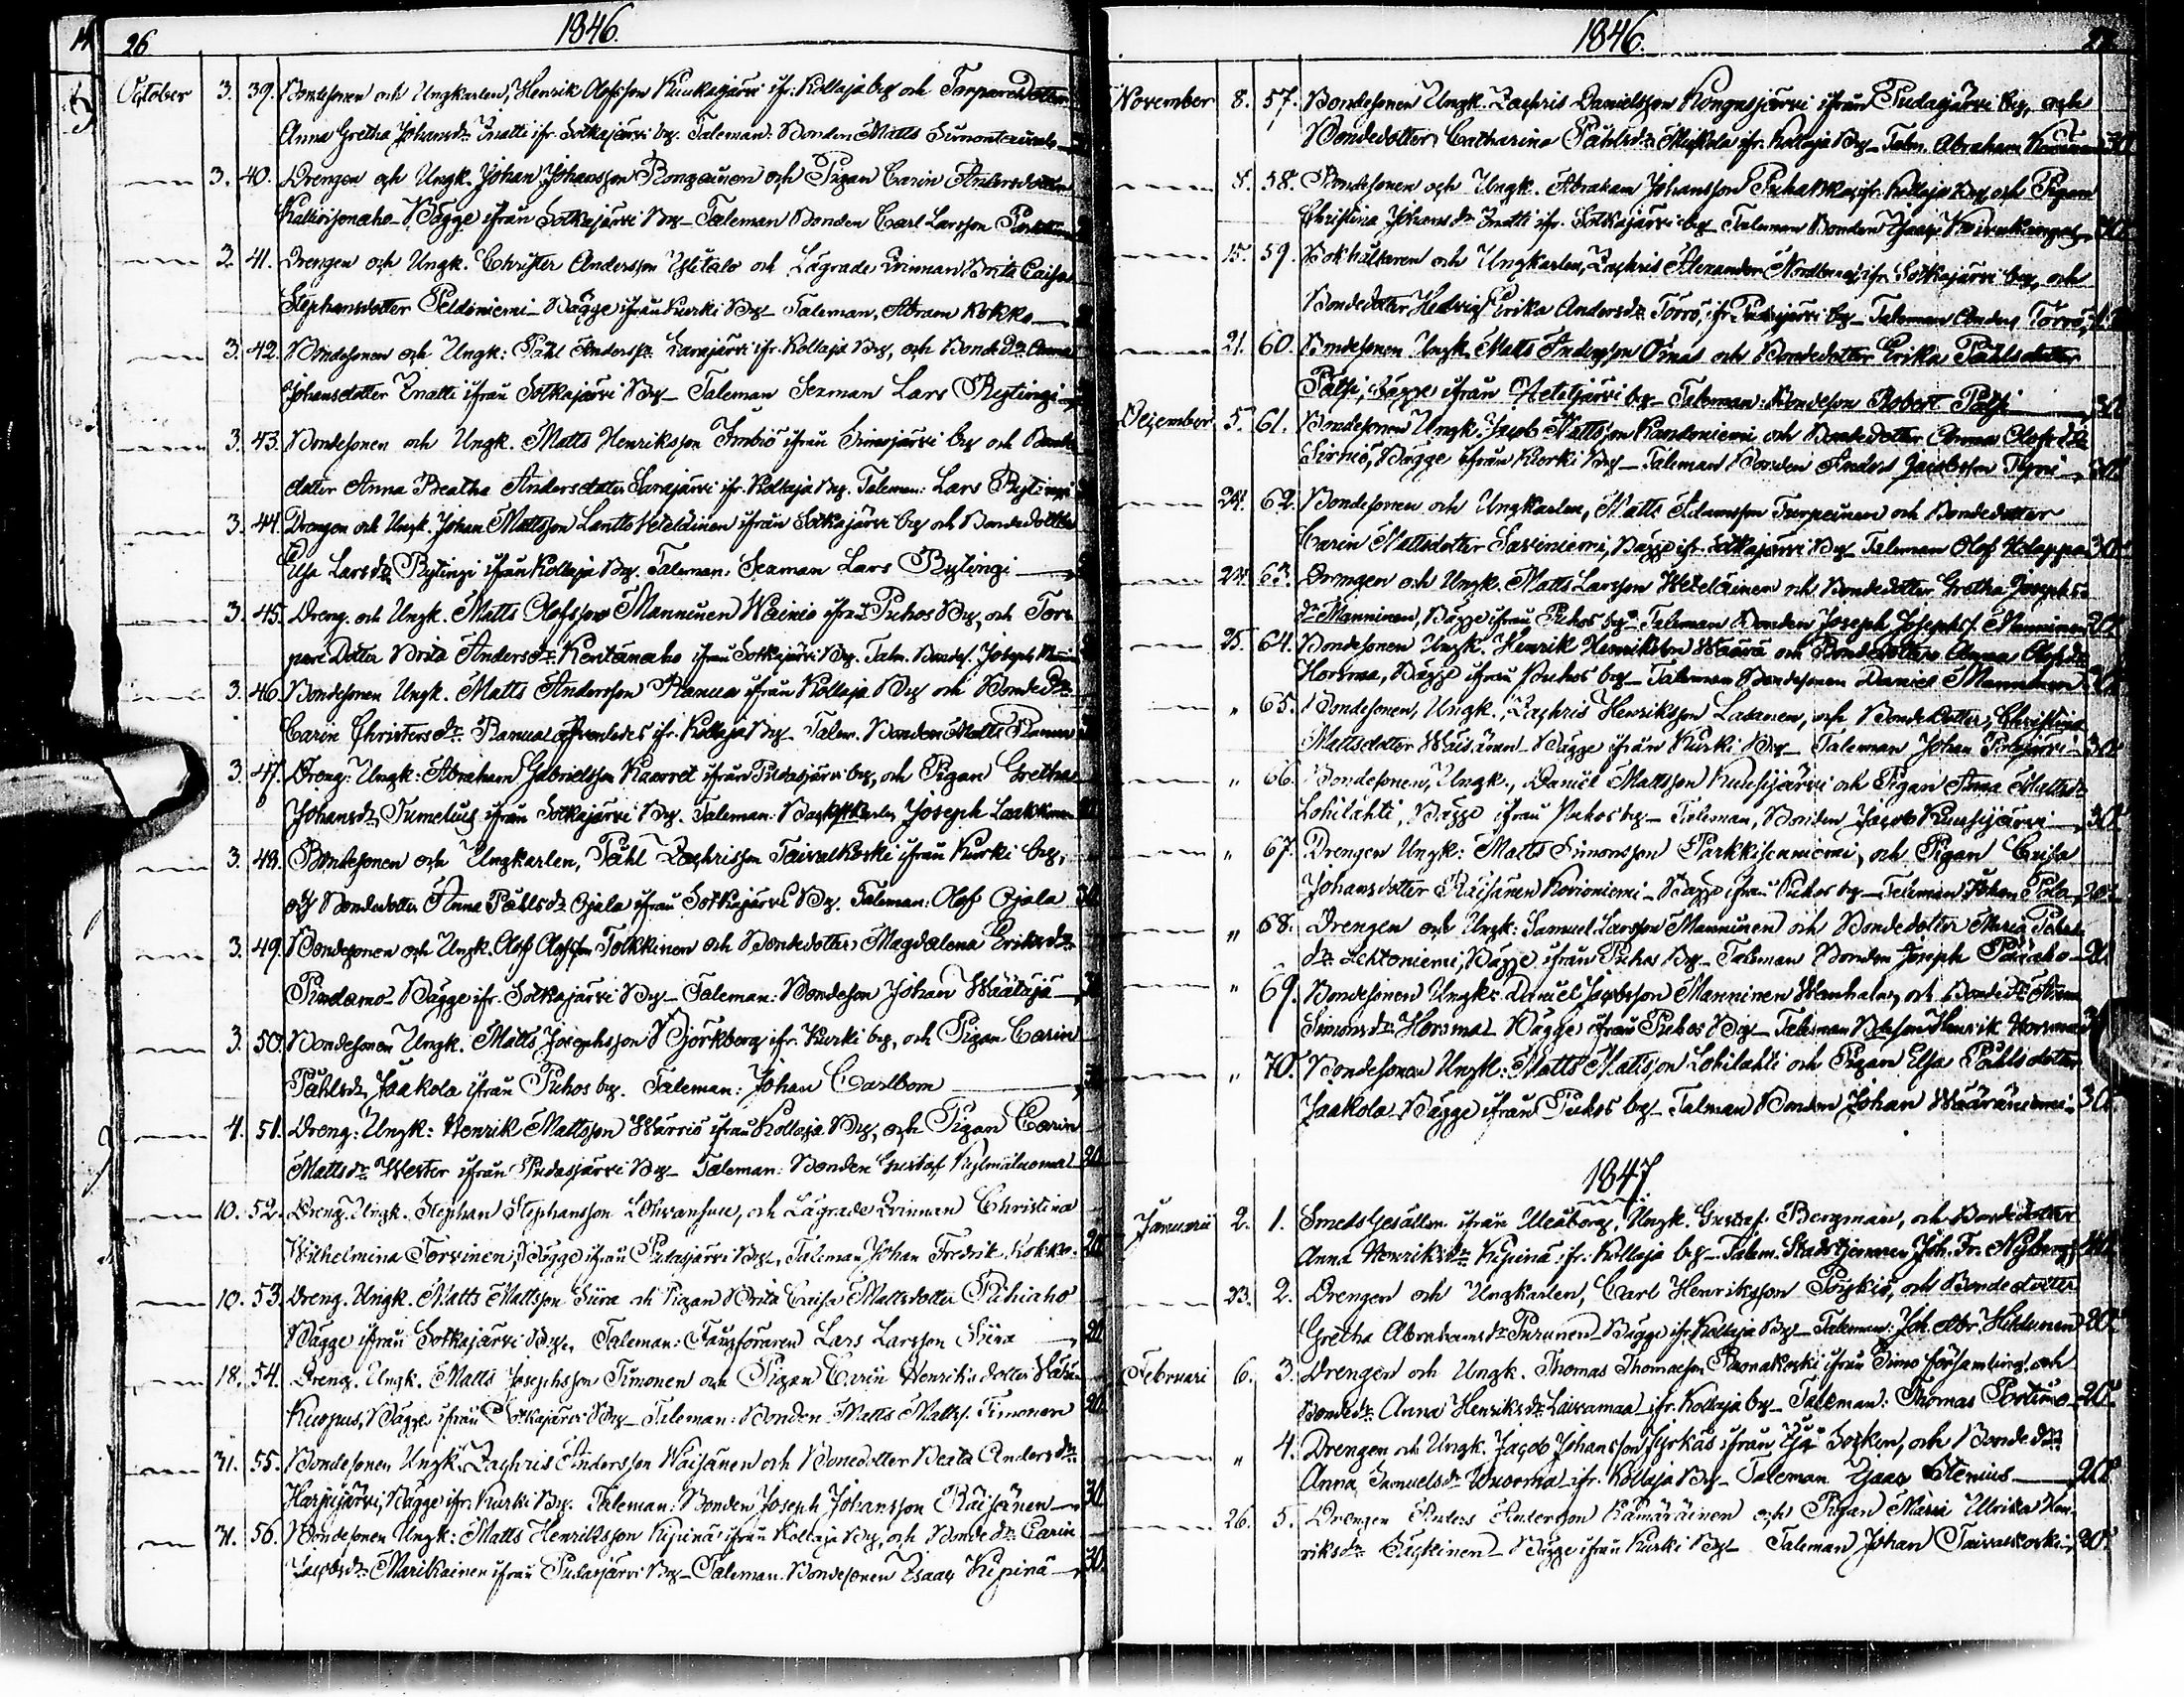 26
1846.
October 3. 39. Bondesonen och Ungkarlen, Henrik Olofsson Kuukasjärvi ifr. Kollaja by och Torpare Dottern
Anna Gretha Johansdr. Inatti ifr. Sotkajärvi by. Taleman: Bonden Matts
3. 40. Drengen och Ungk. Johan Johansson Rongainen och Pigan Carin Andersdotter
Bägge ifrån Sotkajärvi By _ Taleman Bonden Carl Larsson
2. 41. Drengen och Ungk. Christer Andersson Ylitalo och Lägrade Qvinnan Brita Caisa
Stephansdotter Peldoniemi _ Bägge ifrån Kurki By _ Taleman, Abram Kokko
3. 42. Bondesonen och Ungk: Påhl Anderss. Sarajärvi ifr. Kollaja By, och Bonde Dr. Anna
Johansdotter Inatti ifrån Sotkajärvi By _ Taleman Sexman Lars Rytingi
3. 43. Bondesonen och Ungk. Matts Henriksson ifrån Simojärvi by och Bonde
dotter Anna Beatha Andersdotter Sarajärvi ifr. Kollaja By. Taleman: Lars Rytingi
3. 44. Drengen och Ungk. Johan Mattsson Lantto Veteläinen ifrån Sotkajärvi by och Bondedotter
Elsa Larsdr. Rytingi ifrån Kollaja By. Taleman: Sexman Lars Rytingi
3. 45. Dreng. och Ungk. Matts Olofsson Manninen Wainio ifrån Puhos By, och Tor-
pare Dotter Brita Andersdr. Kontanaho ifrån Sotkajärvi By. Talm. Bondes. Joseph
3. 46. Bondesonen Ungk. Matts Andersson Ranua ifrån Kollaja By och Bonde Dr.
Carin Christersdr. Ranua ifr. Kollaja By _ Talem. Bonden Matts Ranua
3. 47. Dreng: Ungk: Abraham Gabrielsson Kaorret ifrån Pudasjärvi by, och Pigan Gretha
Johansdr. Tumelius ifrån Sotkajärvi By. Taleman: Joseph Laakkonen
3. 48. Bondesonen och Ungkarlen, Påhl Zachrisson Taivalkoski ifrån Kurki by,
och Bondedotter Anna Påhlsdr. Ojala ifrån Sotkajärvi By. Taleman: Olof Ojala 30.
3. 49. Bondesonen och Ungk. Olof Olofsson Tolkkinen och Bondedotter Magdalena Eriksdr.
Pindamo _ Bägge ifr. Sotkajärvi By _ Taleman: Bondeson Johan Väätäjä
3. 50. Bondesonen Ungk. Matts Josephsson Björkberg ifr. Kurki by, och Pigan Carin
Påhlsdr. Jaakola ifrån Puhos by. Taleman: Johan Carlbom
4. 51. Dreng: Ungk: Henrik Mattsson Wärriö ifrån Kollaja By, och Pigan Carin
Mattsdr. Wester ifrån Pudasjärvi By _ Taleman: Bonden Gustaf Kylmäluoma 20.
10. 52. Dreng. Ungk. Stephan Stephansson och Lägrade Qvinnan Christina
Wilhelmina Torvinen, Bägge ifrån Pudasjärvi By. Taleman Johan Fredrik Kokko. 20.
10. 53. Dreng. Ungk. Matts Mattsson Siira och Pigan Brita Caisa Mattsdotter Puhiaho
Bägge ifrån Sotkajärvi By. Taleman: Lars Larsson Siira 20.
18. 54. Dreng. Ungk. Matts Josephsson Timonen och Pigan Carin Henriksdotter
Kurpus, Bägge ifrån Sotkajärvi By _ Taleman: Bonden Matts Matts. Timonen 20.
31. 55. Bondesonen Ungk. Zachris Andersson Waisänen och Bondedotter Beata Andersdr.
Harjujärvi, Bägge ifr. Kurki By. Taleman: Bonden Joseph Johansson Räisänen 30.
31. 56. Bondesonen Ungk: Matts Henriksson Kipinä ifrån Kollaja By, och Bonde dr. Carin
Jacobsdr. Marikainen ifrån Pudasjärvi By _ Taleman. Bondesonen Isaac Kipinä 30.
1846.
November 8. 57. Bondesonen Ungk. Zachris Danielsson Kongasjärvi ifrån Pudasjärvi by, och
Bondedotter Catharina Påhlsdr. Muikola ifr. Kollaja By _ Talem. Abraham
8. 58. Bondesonen och Ungk. Abraham Johansson Puhakka, ifr. Kollaja By, och Pigan
Christina Johansdr. Inatti ifr. Sotkajärvi by _ Taleman Bonden Isaac
15. 59. Bokhållaren och Ungkarlen, Zachris Alexander ifr. Sotkajärvi by, och
Bondedotter Hedvig Erika Andersdr. Törrö, ifr. Pudasjärvi by _ Taleman Anders Törrö,
21. 60. Bondesonen Ungk. Matts Andersson Oinas och Bondedotter Erika Påhlsdotter
Pätsi, Bägge ifrån Hetejärvi by _ Taleman: Bondeson Robert Pätsi 30.
Dezember 5. 61. Bondesonen Ungk. Jacob Mattsson Kandoniemi och Bondedotter Anna Olofsdr.
Sirniö, Bägge ifrån Kurki By _ Taleman Bonden Anders Jacobsson Tyni 30.
24. 62. Bondesonen och Ungkarlen, Matts Adamsson Turpeinen och Bondedotter
Carin Mattsdotter Saviniemi, Bägge ifr. Sotkajärvi By _ Taleman Olof Holappa 30.
24. 63. Drengen och Ungk. Matts Larsson Weteläinen och Bondedotter Gretha Josephs-
dr. Manninen, Bägge ifrån Puhos by _ Taleman Bonden Joseph Josephs. Manninen 20.
25. 64. Bondesonen Ungk. Henrik Henriksson Määttä och Bondedotter Anna Olofsdr.
Horsma, Bägge ifrån Puhos by _ Taleman Bondesonen Daniel Manninen
" 65. Bondesonen, Ungk. Zachris Henriksson Lasanen, och Bondedotter, Christina
Mattsdotter Waisänen _ Bägge ifrån Kurki By _ Taleman Johan 30.
" 66. Bondesonen, Ungk., Daniel Mattsson Kuusijärvi och Pigan Anna Mattsdr.
Lohilahti, Bägge ifrån Puhos by _ Taleman, Bonden Jacob Kuusijärvi 30.
" 67. Drengen Ungk: Matts Simonsson Parkkisenniemi, och Pigan Caisa
Johansdotter Räisänen Kovioniemi _ Bägge ifrån Puhos by _ Taleman Johan 20.
" 68. Drengen och Ungk: Samuel Larsson Manninen och Bondedotter Maria
dr. Lehtoniemi, Bägge ifrån Puhos By _ Taleman Bonden Joseph Pääaho 20.
" 69. Bondesonen Ungk: Daniel Jacobsson Manninen och Bonde Dr. Anna
Simonsdr. Horsma _ Bägge ifrån Puhos By _ Taleman Bdeson Henrik Horsma
" 70. Bondesonen Ungk: Matts Matsson Lohilahti och Pigan Elsa Påhlsdotter
Jaakola _ Bägge ifrån Puhos by _ Talman Bonden Johan Wääräniemi 30.
1847.
Januarii 2. 1. Smeds Gesällen ifrån Uleåborg, Ungk. Gustaf Bergman, och Bondedotter
Anna Henriksdr. Kipinä ifr. Kollaja by _ Talem. Stadstjenaren Joh. Fr. Nyberg
23. 2. Drengen och Ungkarlen, Carl Henriksson Pöykiö, och Bondedotter
Gretha Abrahamsdr. Purunen _ Bägge ifr. Kollaja By _ Taleman: Joh. Abr. Hildunen 20.
Februari 6. 3. Drengen och Ungk. Thomas Thomasson Ruonakoski ifrån Simo församling och
Bondedr. Anna Henriksdr. Laivamaa _ ifr. Kollaja by _ Taleman: Thomas Portimo 20.
" 4. Drengen och Ungk. Jacob Johansson Jyrkäs ifrån Ijå Socken, och Bonde Dr.
Anna Samuelsdr. Wuorma _ ifr. Kollaja By _ Taleman Isaac Stenius 20.
26. 5. Drengen Anders Andersson Kämäräinen och Pigan Maria Ulrika Hen-
riksdr. _ Bägge ifrån Kurki By _ Taleman Johan Taivalkoski 20.